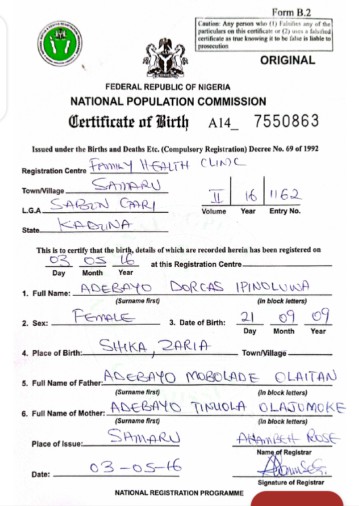 Form B.2
Caution: Any person who (1) Falsifies any of the
particulars on this certificate or (2) uses a falsified
certificate as true knowing it to be false is liable to
prosecution
ORIGINAL
FEDERAL REPUBLIC OF NIGERIA
NATIONAL POPULATION COMMISSION
Certificate of Birth A14_ 7550863
Issued under the Births and Deaths Etc. (Compulsory Registration) Decree No. 69 of 1992
Registration Centre FAMILY HEALTH CLINIC
Town/Village SAMARU
L.G.A SABON GARI
II 16 1162
Volume Year Entry No.
State KADUNA
This is to certify that the birth, details of which are recorded herein has been registered on
03 05 16 at this Registration Centre
Day Month Year
1. Full Name: ADEBAYO DORCAS IPINOLUWA
(Surname first) (in block letters)
2. Sex: FEMALE 3. Date of Birth: 21 09 09
Day Month Year
4. Place of Birth: SHIKA, ZARIA Town/Village
5. Full Name of Father: ADEBAYO MOBOLADE OLAITAN
(Surname first) (in block letters)
6. Full Name of Mother: ADEBAYO TINUOLA OLAJUMOKE
(Surname first) (in block letters)
Place of Issue: SAMARU ANAMBEH ROSE
Name of Registrar
Date: 03-05-16
Signature of Registrar
NATIONAL REGISTRATION PROGRAMME